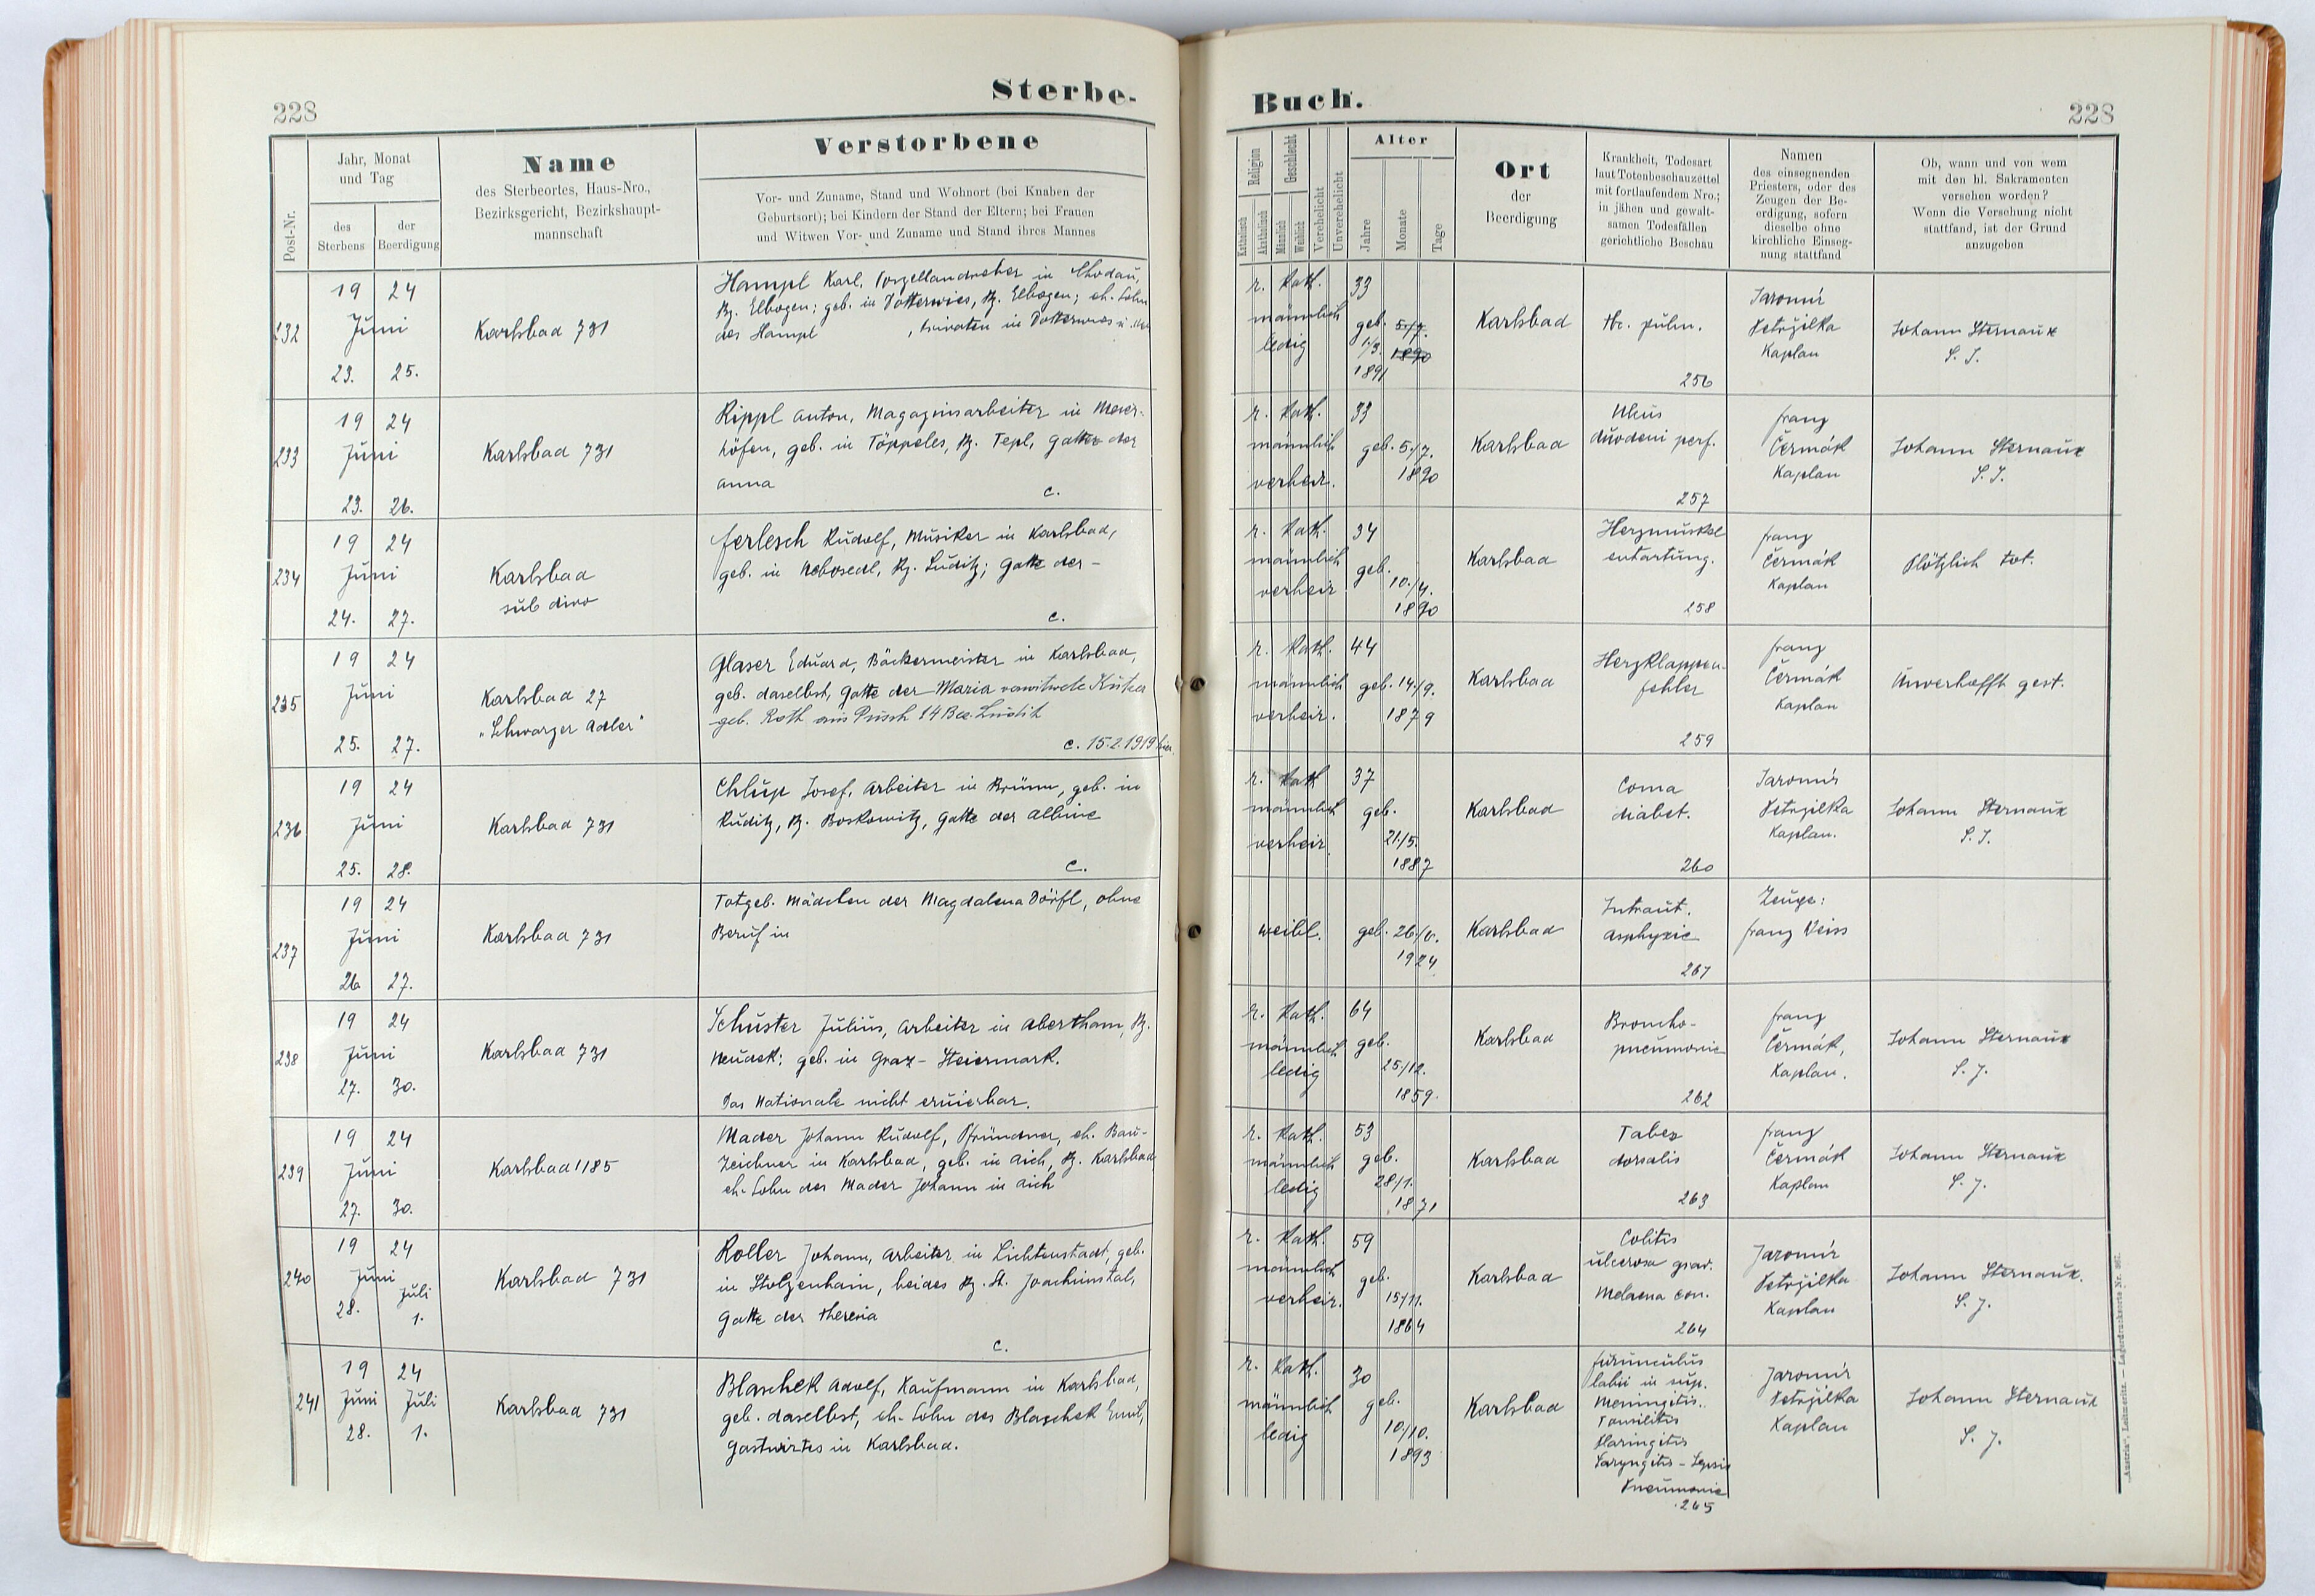 228
Sterbe-
Jahr, Monat
und Tag
Name
des Sterbeortes, Haus-Nro.,
Bezirksgericht, Bezirkshaupt-
mannschaft
Verstorbene
Vor- und Zuname, Stand und Wohnort (bei Knaben der
Geburtsort); bei Kindern der Stand der Eltern; bei Frauen
und Witwen Vor- und Zuname und Stand ihres Mannes
Post-Nr.
des
Sterbens
der
Beerdigung
232
19 24
Juni
23. 25.
Karlsbad 731
Hampl Karl, Porzellandreher in Chodau,
Bz. Elbogen; geb. in Dotterwies, Bz. Elbogen; eh. Sohn
des Hampl , Privaten in Dotterwies u.
233
19 24
Juni
23. 26.
Karlsbad 731
Rippl Anton, Magazinsarbeiter in Meier-
höfen, geb. in Töppeles, Bz. Tepl, Gatte der
Anna
c.
234
19 24
Juni
24. 27.
Karlsbad
sub divo
Ferlesch Rudolf, Musiker in Karlsbad,
geb. in Nebosedl, Bz. Luditz; Gatte der -
c.
235
19 24
Juni
25. 27.
Karlsbad 27
„Schwarzer Adler"
Glaser Eduard, Bäckermeister in Karlsbad,
geb. daselbst, Gatte der Maria verwitwete
geb. Roth aus 14 Bez. Luditz
c. 15.2.1919 hier.
236
19 24
Juni
25. 28.
Karlsbad 731
Chlup Josef, Arbeiter in Brünn, geb. in
Ruditz, Bz. Boskowitz, Gatte der Albine
c.
237
19 24
Juni
26 27.
Karlsbad 731
Totgeb. Mädchen der Magdalena Dörfl, ohne
Beruf in
238
19 24
Juni
27. 30.
Karlsbad 731
Schuster Julius, Arbeiter in Abertham, Bz.
Neudek; geb. in Graz - Steiermark.
Das Nationale nicht eruierbar.
239
19 24
Juni
27. 30.
Karlsbad 1185
Mader Johann Rudolf, Pfründner, eh. Bau-
Zeichner in Karlsbad, geb. in Aich, Bz. Karlsbad
eh. Sohn des Mader Johann in Aich
240
19 24
Juni Juli
28. 1.
Karlsbad 731
Roller Johann, Arbeiter in Lichtenstadt, geb.
in Stolzenhain, beides Bz. St. Joachimstal,
Gatte der Theresia
c.
241
19 24
Juni Juli
28. 1.
Karlsbad 731
Blaschek Adolf, Kaufmann in Karlsbad,
geb. daselbst, eh. Sohn des Blaschek Emil,
Gastwirtes in Karlsbad.
Buch.
228
Religion
Katholisch
Akatholisch
Geschlecht
Männlich
Weiblich
Verehelicht
Unverehelicht
Alter
Jahre
Monate
Tage
Ort
der
Beerdigung
Krankheit, Todesart
laut Totenbeschauzettel
mit fortlaufendem Nro.;
in jähen und gewalt-
samen Todesfällen
gerichtliche Beschau
Namen
des einsegnenden
Priesters, oder des
Zeugen der Be-
erdigung, sofern
dieselbe ohne
kirchliche Einseg-
nung stattfand
Ob, wann und von wem
mit den hl. Sakramenten
versehen worden?
Wenn die Versehung nicht
stattfand, ist der Grund
anzugeben
r. Kath.
männlich
ledig
33
geb. 5./7.
1890
1./3.
1891
Karlsbad
tbc. pulm.
256
Jaromír
Petržilka
Kaplan
Johann Sternaux
S. J.
r. Kath.
männlich
verheir.
33
geb. 5./7.
1890
Karlsbad
Ulcus
duodeni perf.
257
Franz
Čermák
Kaplan
Johann Sternaux
S. J.
r. Kath.
männlich
verheir
34
geb.
10./4.
1890
Karlsbad
Herzmuskel
entartung.
258
Franz
Čermák
Kaplan
Plötzlich tot.
r. Kath.
männlich
verheir.
44
geb. 14./9.
1879
Karlsbad
Herzklappen-
fehler
259
Franz
Čermák
Kaplan
Unverhofft gest.
r. Kath
männlich
verheir.
37
geb.
21./5.
1887
Karlsbad
Coma
diabet.
260
Jaromír
Petržilka
Kaplan.
Johann Sternaux
S. J.
weibl.
geb. 26./6.
1924
Karlsbad
Intraut.
Asphyxie
261
Zeuge:
Franz Weiss
r. Kath.
männlich
ledig
64
geb.
25./12.
1859.
Karlsbad
Broncho-
pneumonie
262
Franz
Čermák,
Kaplan.
Johann Sternaux
S. J.
r. Kath.
männlich
ledig
53
geb.
28/1.
1871
Karlsbad
Tabes
dorsalis
263
Franz
Čermák
Kaplan
Johann Sternaux
S. J.
r. Kath.
männlich
verheir.
59
geb.
15/11.
1864
Karlsbad
Colitis
ulcerosa grav.
Melaena con.
264
Jaromír
Petržilka
Kaplan
Johann Sternaux.
S. J.
r. Kath.
männlich
ledig
30
geb.
10/10.
1893
Karlsbad
Furunculus
labii in sup.
Meningitis.
Tonsilitis
Pharingitis
Laryngitis - Sepsis
Pneumonie
265
Jaromír
Petržilka
Kaplan
Johann Sternaux
S. J.
„Austria", Leitmeritz. — Lagerdrucksorte Nr. 367.